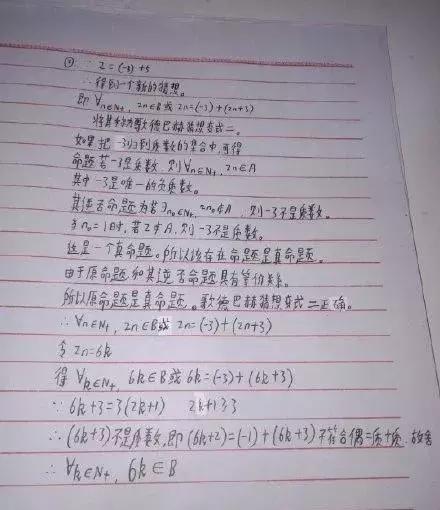 ① ∵ 2=(-3)+5
∴ 得到一个新的猜想。
即 ∀n∈N₊, 2n∈B或 2n=(-3)+(2n+3)
将其称为歌德巴赫猜想变式二。
如果把-3归到质数的集合中,可得
命题若-3是质数,则∀n∈N₊, 2n∈A
其中-3是唯一的负质数。
其逆否命题为若∃n₀∈N₊, 2n₀∉A, 则-3不是质数。
当n₀=1时,若2∉A, 则-3不是质数。
这是一个真命题。所以该存在命题是真命题。
由于原命题和其逆否命题具有等价关系。
所以原命题是真命题。歌德巴赫猜想变式二正确。
∴ ∀n∈N₊, 2n∈B或 2n=(-3)+(2n+3)
令 2n=6k
得 ∀k∈N₊, 6k∈B或 6k=(-3)+(6k+3)
∵ 6k+3=3(2k+1) 2k+1≥3
∴ (6k+3)不是质数,即(6k+2)=(-1)+(6k+3)不符合偶=质+质,故舍
∴ ∀k∈N₊, 6k∈B